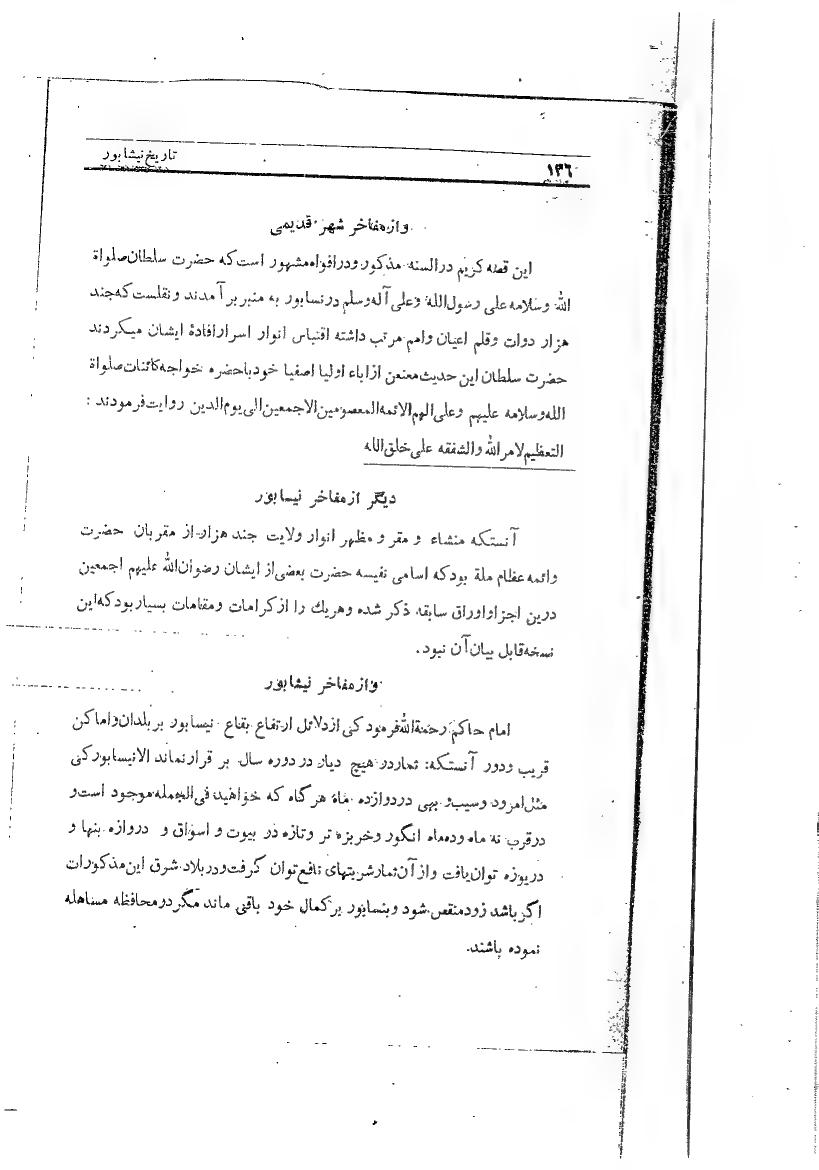 ۱۳۶
تاریخ نیشابور
و از مفاخر شهر قدیمی
این قصه کریم در السنه مذکور و در افواه مشهور است که حضرت سلطان صلواة
الله وسلامه علی رسول‌الله وعلی آله وسلم در نسابور به منبر بر آمدند و نقلست که جند
هزار دوات وقلم اعیان وامم مرتب داشته اقتباس انوار اسرار افادهٔ ایشان میکردند
حضرت سلطان این حدیث معنعن از اباء اولیا اصفیا خود با حضره خواجه کائنات صلواة
الله وسلامه علیهم وعلی الهم الائمه المعصومین الاجمعین الی یوم الدین روایت فرمودند :
التعظیم لامر الله والشفقه علی خلق الله
دیگر از مفاخر نیسابور
آنستکه منشاء و مقر و مظهر انوار ولایت جند هزار از مقربان حضرت
وائمه عظام ملة بود که اسامی نفیسه حضرت بعضی از ایشان رضوان الله علیهم اجمعین
درین اجزا و اوراق سابقه ذکر شده وهریك را از کرامات ومقامات بسیار بود که این
نسخه قابل بیان آن نبود.
و از مفاخر نیشابور
امام حاکم رحمة الله فرمود کی از دلائل ارتفاع بقاع نیسابور بر بلدان و اماکن
قریب ودور آنستکه: ثمار در هیچ دیار در دوره سال بر قرار نماند الا نیسابور کی
مثل امرود وسیب و بهی در دوازده ماه هرگاه که خواهند فی الجمله موجود است و
در قرب نه ماه و ده ماه انگور وخربزه تر وتازه در بیوت و اسواق و دروازه بنها و
دریوزه توان یافت و از آن ثمار شربتهای نافع توان گرفت و در بلاد شرق این مذکورات
اگر باشد زود منقص شود و بنسابور بر کمال خود باقی ماند مگر در محافظه مساهله
نموده باشند.